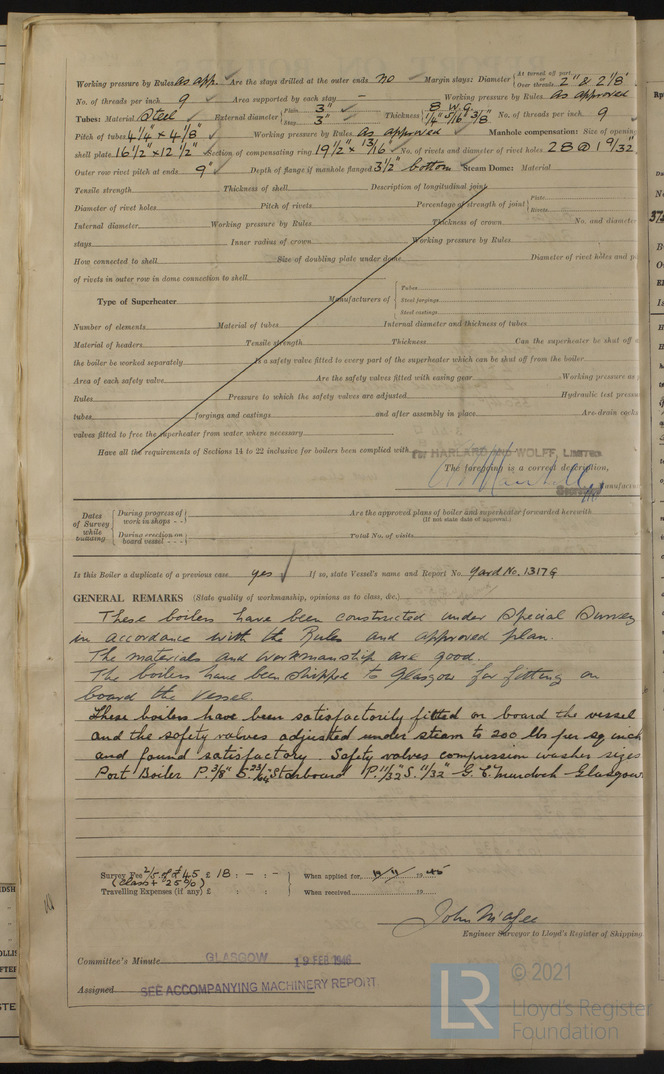 Working pressure by Rules as app. ✓ Are the stays drilled at the outer ends no ✓ Margin stays: Diameter { At turned off part, or Over threads 2" & 2 1/8"
No. of threads per inch 9 ✓ Area supported by each stay – Working pressure by Rules as approved
Tubes: Material Steel ✓ External diameter { Plain 3" ✓ Stay 3" ✓ Thickness { 8 W.G. 1/4" 5/16" 3/8" No. of threads per inch 9
Pitch of tubes 4 1/4" x 4 1/8" ✓ Working pressure by Rules as approved ✓ Manhole compensation: Size of opening
shell plate 16 1/2" x 12 1/2" ✓ Section of compensating ring 19 1/2" x 13/16" ✓ No. of rivets and diameter of rivet holes 28 @ 1 9/32
Outer row rivet pitch at ends 9" ✓ Depth of flange if manhole flanged 3 1/2" bottom ✓ Steam Dome: Material
Tensile strength Thickness of shell Description of longitudinal joint
Diameter of rivet holes Pitch of rivets Percentage of strength of joint { Plate Rivets
Internal diameter Working pressure by Rules Thickness of crown No. and diameter
stays Inner radius of crown Working pressure by Rules
How connected to shell Size of doubling plate under dome Diameter of rivet holes and p
of rivets in outer row in dome connection to shell
Type of Superheater Manufacturers of { Tubes Steel forgings Steel castings
Number of elements Material of tubes Internal diameter and thickness of tubes
Material of headers Tensile strength Thickness Can the superheater be shut off a
the boiler be worked separately Is a safety valve fitted to every part of the superheater which can be shut off from the boiler
Area of each safety valve Are the safety valves fitted with easing gear Working pressure as
Rules Pressure to which the safety valves are adjusted Hydraulic test pressu
tubes forgings and castings and after assembly in place Are drain cocks
valves fitted to free the superheater from water where necessary
Have all the requirements of Sections 14 to 22 inclusive for boilers been complied with
For HARLAND AND WOLFF, LIMITED
The foregoing is a correct description,
Manufactur
Dates of Survey while building { During progress of work in shops - - Are the approved plans of boiler and superheater forwarded herewith
(If not state date of approval.)
During erection on board vessel - - - Total No. of visits
Is this Boiler a duplicate of a previous case yes ✓ If so, state Vessel's name and Report No. Yard No. 1317G
GENERAL REMARKS (State quality of workmanship, opinions as to class, &c.)
These boilers have been constructed under Special Survey
in accordance with the Rules and approved plan.
The materials and workmanship are good.
The boilers have been shipped to Glasgow for fitting on
board the vessel.
These boilers have been satisfactorily fitted on board the vessel
and the safety valves adjusted under steam to 200 lbs per sq inch
and found satisfactory. Safety valves compression washer sizes
Port Boiler P. 3/8" S. 23/64" Starboard P. 11/32" S. 11/32" G. C. Murdoch Glasgow
Survey Fee 2/5 of £45 £ 18 : - : - When applied for, 19 45
(Class + 25%)
Travelling Expenses (if any) £ : : When received, 19
John McAfee
Engineer Surveyor to Lloyd's Register of Shipping
Committee's Minute GLASGOW 19 FEB 1946
Assigned SEE ACCOMPANYING MACHINERY REPORT.
LR © 2021
Lloyd's Register
Foundation